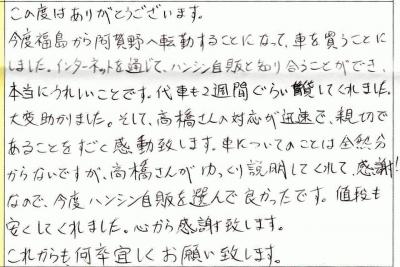 この度はありがとうございます。
今度福島から阿賀野へ転勤することになって、車を買うことに
しました。インターネットを通じて、ハンシン自販と知り合うことができ、
本当にうれしいことです。代車も2週間ぐらい貸してくれました。
大変助かりました。そして、高橋さんの対応が迅速で、親切で
あることをすごく感動致します。車についてのことは全然分
からないですが、高橋さんがゆっくり説明してくれて、感謝!
なので、今度ハンシン自販を選んで良かったです。値段も
安くしてくれました。心から感謝致します。
これからも何卒宜しくお願い致します。